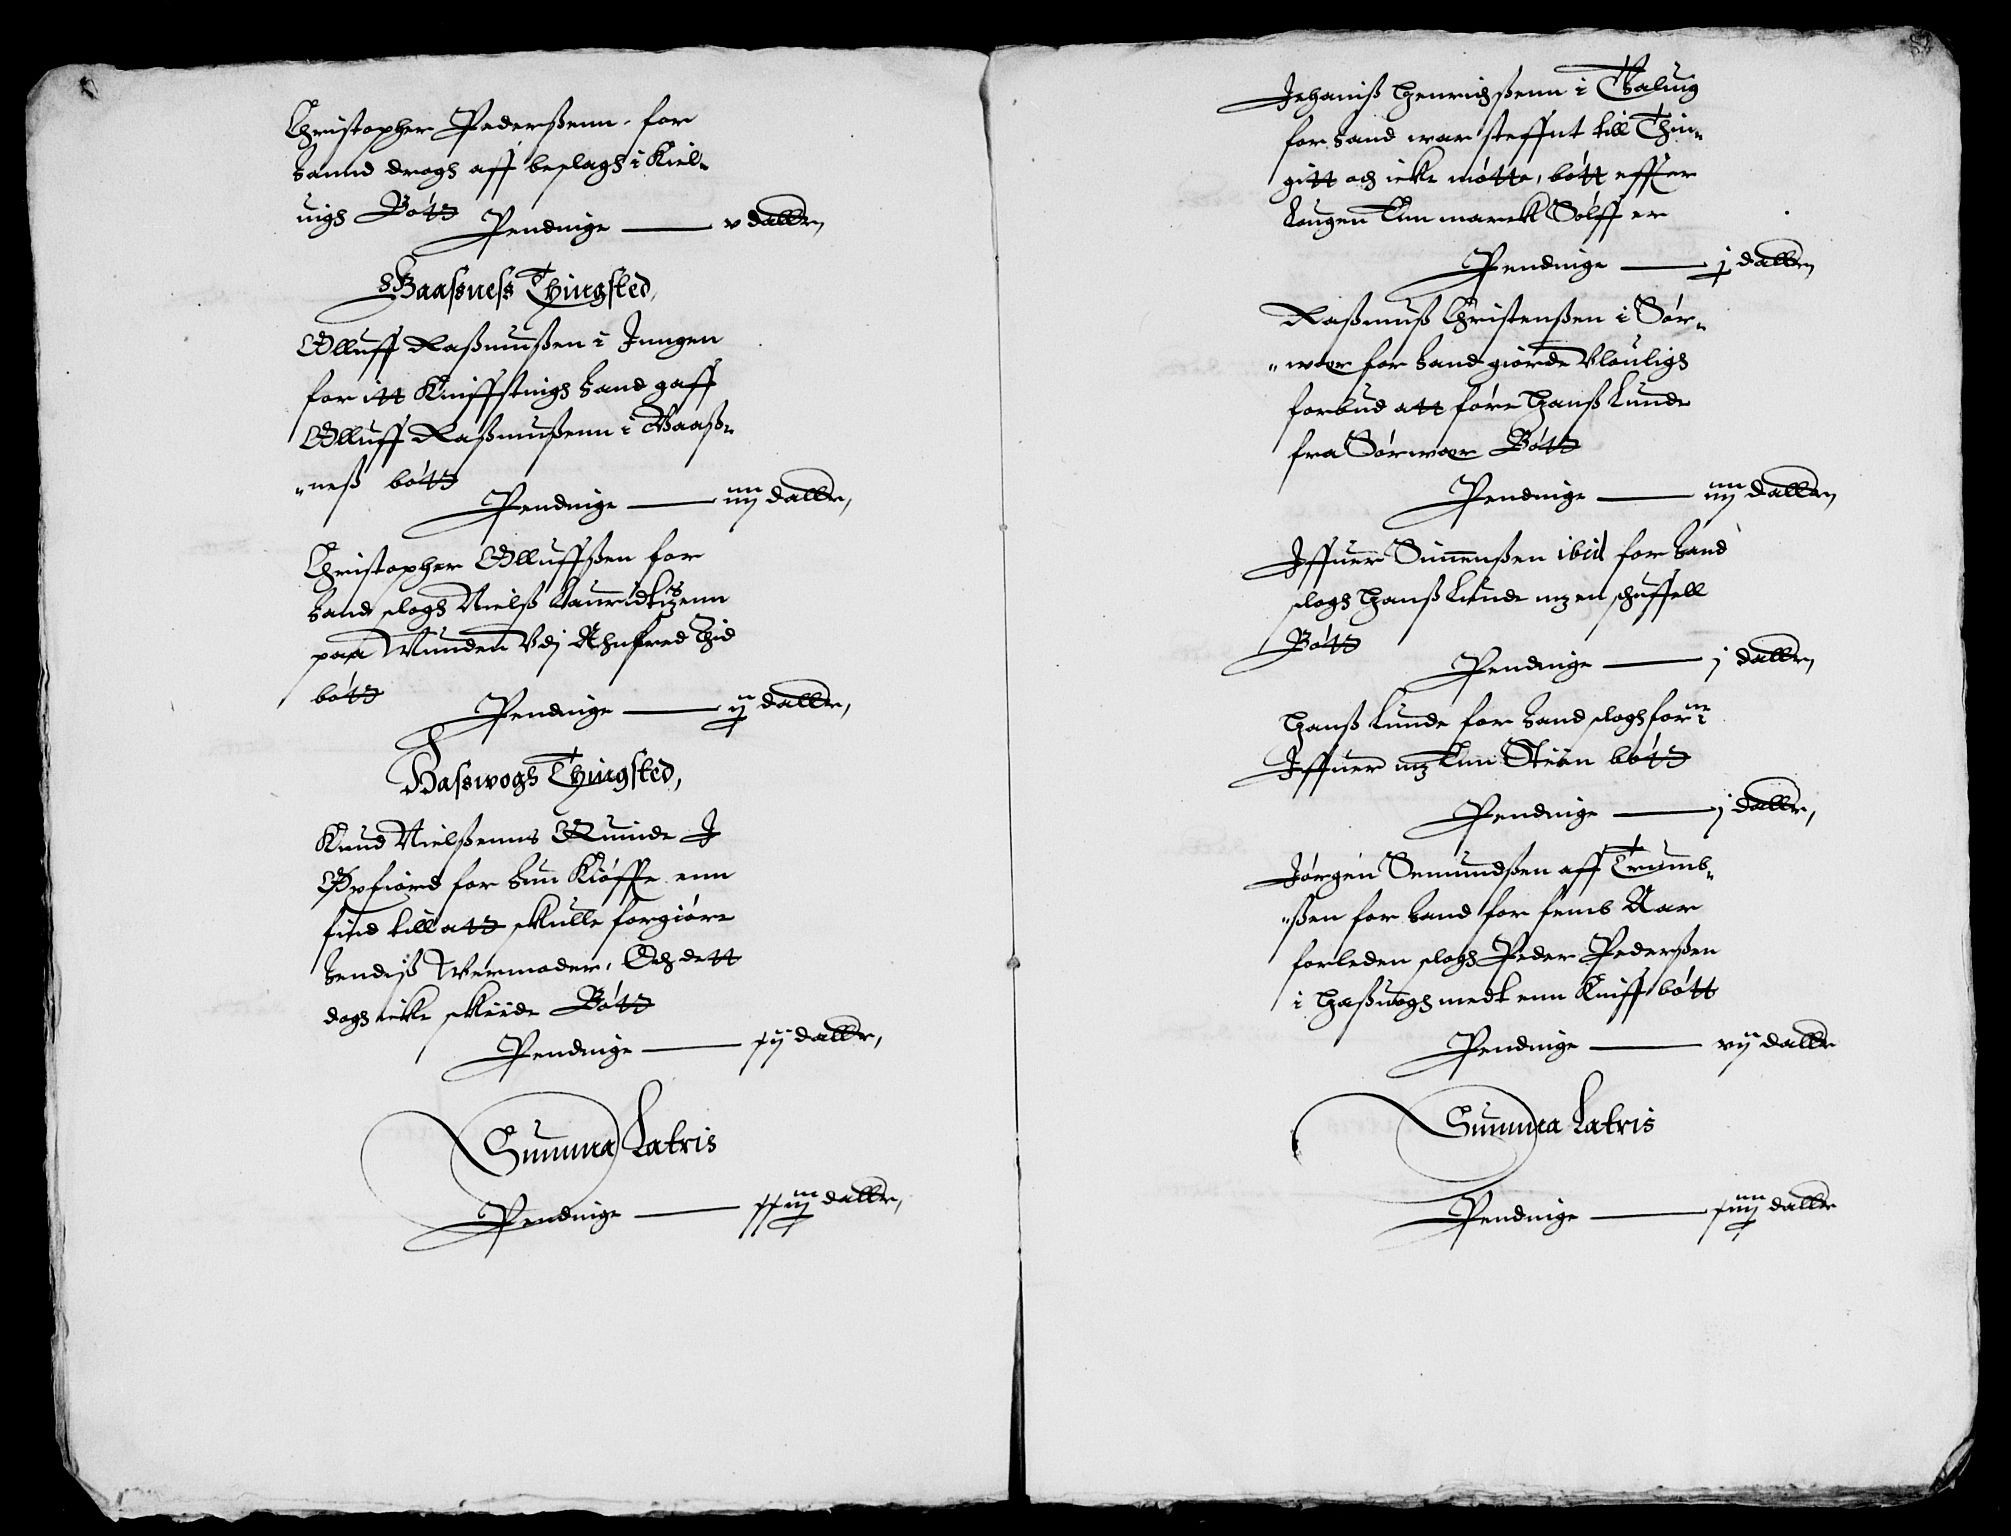 Christopher Pederßenn for
hannd drogh aff beslagh i Kiel„
uigh Bótt
Pendinge — v daller,
Baaßness Thingsted,
Olluff Raßmußen i Jungen
for itt Kniffstingh hand gaff
Olluff Raßmußenn i Baaß„
„neß bótt
Pendinge — iiij daller,
Christopher Olluffßen for
hand slogh Nielß Lauridtzenn
paa Munden Vdj Ahnfred Thid
bótt
Pendinge — ij daller,
Haßwogh Thingsted,
Knud Nielßenns Quinde J
Oxfiord for hun Kiøffte enn
find till att skulle forgiøre
hendiß Wermoder, Och dett
dogh icke skiide Bótt
Pendinge — xij daller,
Summa Latris
Pendinge — xxiij daller,
Johaniß Henrichßenn i Galuig
for hand war steffnt till Thin„
gitt och icke møtte, bótt effter
Lougen Enn marck Sølff er
Pendinge — j daller,
Raßmuß Christenßen i Sór„
„wær for hand giorde Vlouligh
forbud att føre Hanß Lunde
fra Sórwær Bótt
Pendinge — iiij daller,
Iffuer Simenßen ibid for hand
slogh Hanß Lunde mz en schuffell
Bótt
Pendinge — j daller,
Hanß Lunde for hand slogh forne
Iffuer mz Enn Stiin bótt
Pendinge — j daller,
Jórgen Semundßen aff Trumb„
„ßen for hand for femb Aar
forleden slogh Peder Pederßen
i Haßuogh medt enn Kniff bótt
Pendinge — vij daller
Summa Latris
Pendinge — xiiij daller